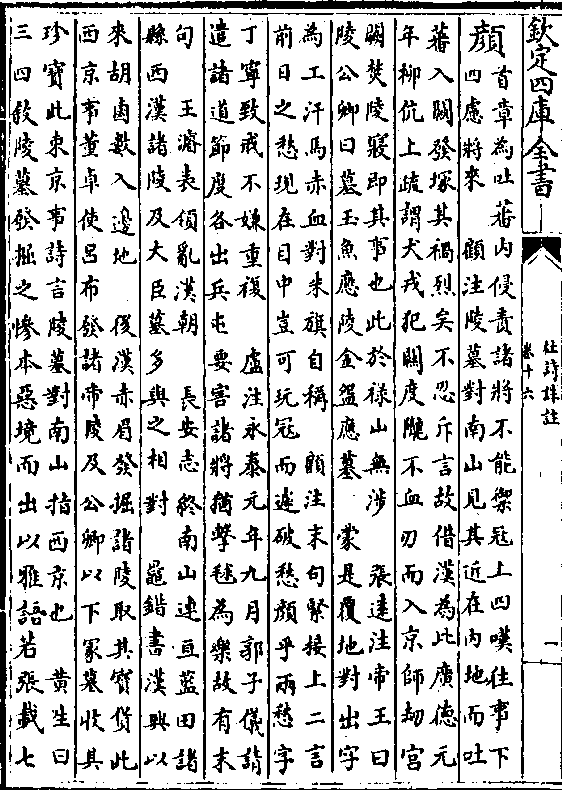 欽定四庫全書
杜詩詳註
卷十六
一
顔
首章為吐蕃内侵責諸將不能禦冦上四嘆往事下
四慮將來　顧注陵墓對南山見其近在内地而吐
蕃入闗發塚其禍烈矣不忍斥言故借漢為比廣德元
年栁伉上疏謂犬戎犯闗度隴不血刃而入京師刼宫
闕焚陵寢即其事也此於禄山無涉　張逺注帝王曰
陵公卿曰墓玉魚應陵金盌應墓　蒙是覆地對出字
為工汗馬赤血對朱旗自稱　顧注末句緊接上二言
前日之愁現在目中豈可玩冦而遽破愁顔乎兩愁字
丁寧致戒不嫌重複　盧注永泰元年九月郭子儀請
遣諸道節度各出兵屯要害諸將猶擊毬為樂故有末
句　王濬表領亂漢朝　長安志終南山連亘藍田諸
縣西漢諸陵及大臣墓多與之相對　鼂錯書漢興以
來胡鹵數入邊地　後漢赤眉發掘諸陵取其寳貨此
西京事董卓使吕布發諸帝陵及公卿以下冢墓收其
珍寳此東京事詩言陵墓對南山指西京也　黄生曰
三四叙陵墓發掘之慘本惡境而出以雅語若張載七